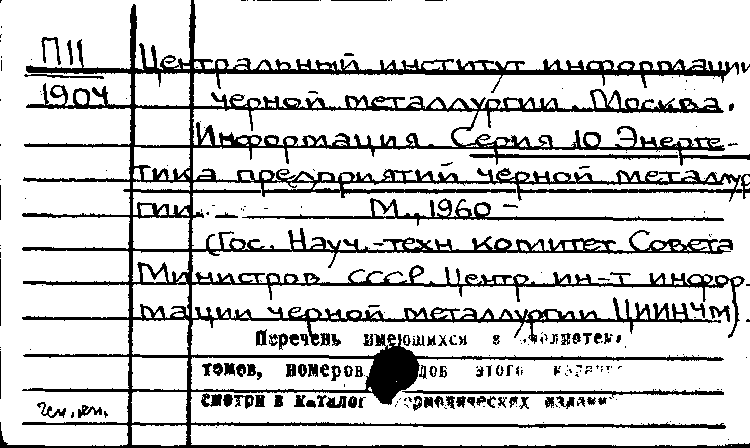 П11 Центральный институт информации
1904 черной металлургии. Москва.
Информация. Серия 10 Энерге-
тика предприятий черной металлур
гии. М., 1960 -
(Гос. Науч.-техн. комитет Совета
Министров СССР. Центр. ин-т инфор
мации черной металлургии ЦИИНЧМ).
Перечень имеющихся в
томов, номеров, этого
смотри в каталог